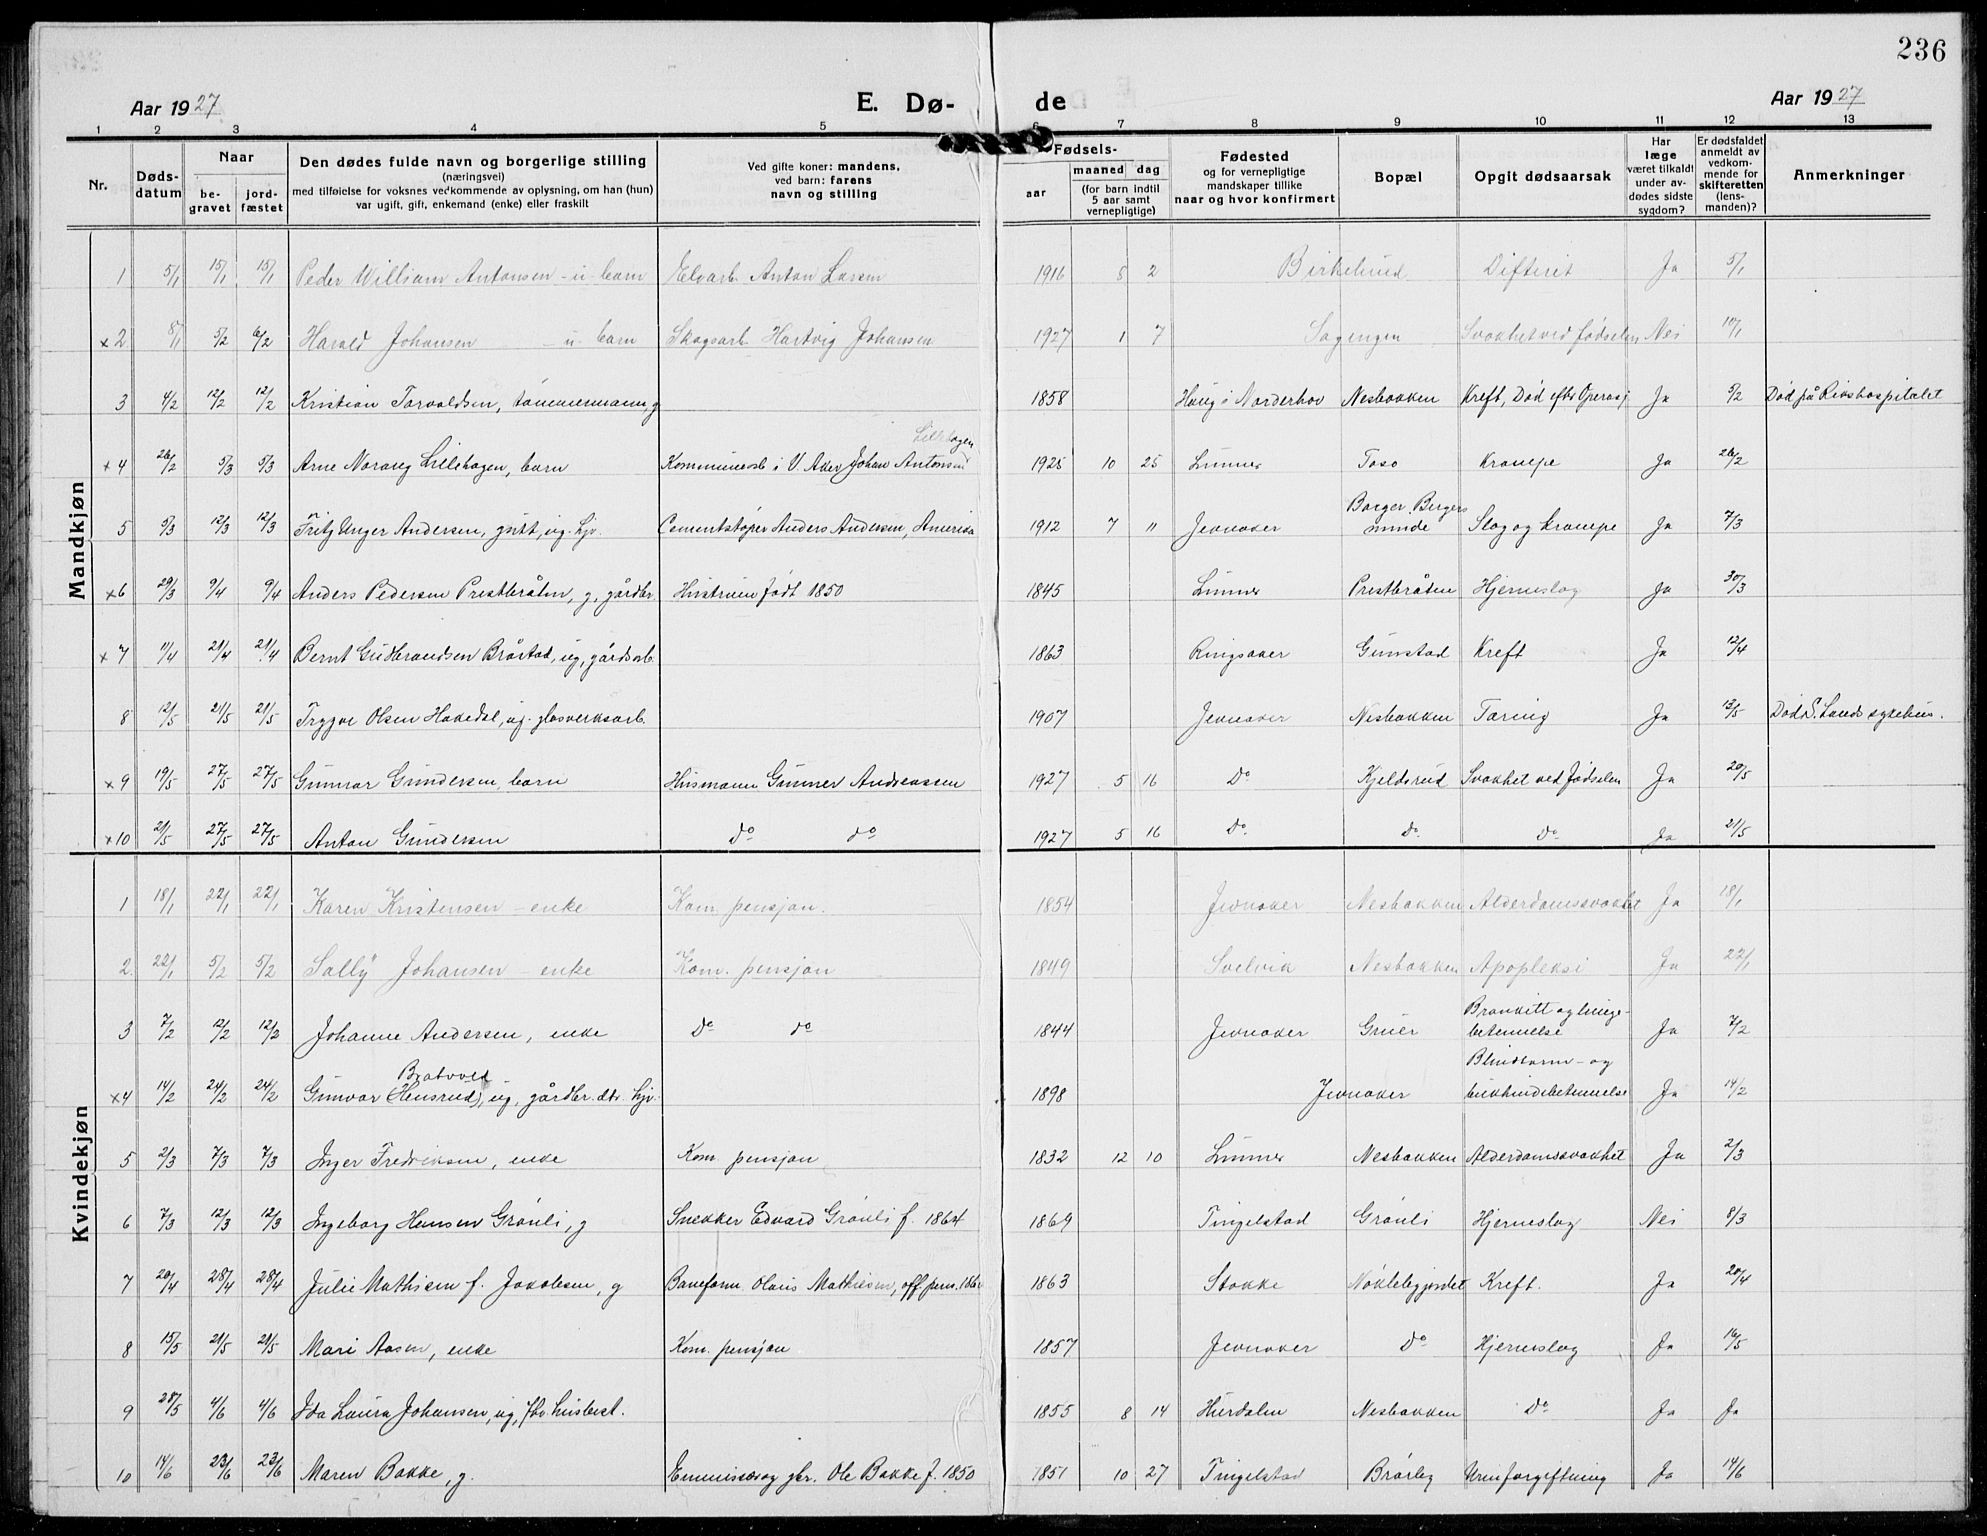 236
Aar 1927 E. Dø- de Aar 1927
1 2 3 4 5 6 7 8 9 10 11 12 13
Nr. Døds-datum Naar be-gravet jord-fæstet Den dødes fulde navn og borgerlige stilling (næringsvei) med tilføielse for voksnes vedkommende av oplysning, om han (hun) var ugift, gift, enkemand (enke) eller fraskilt Ved gifte koner: mandens, ved barn: farens navn og stilling Fødsels- aar maaned dag (for barn indtil 5 aar samt vernepligtige) Fødested og for vernepligtige mandskaper tillike naar og hvor konfirmert Bopæl Opgit dødsaarsak Har læge været tilkaldt under av-dødes sidste sygdom? Er dødsfaldet anmeldt av vedkom-mende for skifteretten (lens-manden)? Anmerkninger
Mandkjøn
1 5/1 15/1 15/1 Peder William Antonsen - u - barn Elvarb. Anton Larsen 1916 8 2 Birkelund Difterit Ja 5/1
x2 8/1 5/2 6/2 Harald Johansen - u - barn Skogsarb. Hartvig Johansen 1927 1 7 Sagengen Svakhet ved fødselen Nei 10/1
3 4/2 12/2 12/2 Kristian Torvaldsen, tømmermann, g Haug i Norderhov 1858 Nesbakken Kreft, Død efter Operasj. Ja 5/2 Død på Rikshospitalet
x4 26/2 5/3 5/3 Arne Norveg Lillehagen, barn Kommunearb. i V. Aker Johan Antonsen Lillehagen 1925 10 25 Lunner Toso Krampe Ja 26/2
5 5/3 12/3 12/3 Fritz Unger Andersen, gutt, ug. hjv. Cementstøper Anders Andersen, Amerika 1912 7 11 Jevnaker Borger Bergersminde Slag og krampe Ja 7/3
x6 29/3 9/4 9/4 Anders Pedersen Prestbråten, g, gårdbr. Hustruen født 1850 1845 Lunner Prestbråten Hjerneslag Ja 30/3
x7 11/4 21/4 21/4 Bernt Gudbrandsen Brårstad, ug, gårdsarb. 1863 Ringsaker Gunstad Kreft Ja 12/4
8 12/5 21/5 21/5 Trygve Olsen Hakedal, ug. glasverksarb. 1907 Jevnaker Nesbakken Tæring Ja 13/5 Død S. Lands sykehus.
x9 19/5 27/5 27/5 Gunnar Gundersen, barn Husmann Gunner Andreassen 1927 5 16 Do Kjeldsrud Svakhet ved Fødselen Ja 20/5
x10 21/5 27/5 27/5 Anton Gundersen do do 1927 5 16 Do do do Ja 21/5
Kvindekjøn
1 18/1 22/1 22/1 Karen Kristensen - enke Kom. pensjon. 1854 Jevnaker Nesbakken Alderdomssvakhet Ja 18/1
2. 22/1 5/2 5/2 Sally Johansen - enke Kom. pensjon 1849 Svelvik Nesbakken Apopleksi Ja 22/1
3 7/2 12/2 12/2 Johanne Andersen, enke Do do 1844 Jevnaker Gruer Bronkitt og lunge-betennelse Ja 7/2
x4 14/2 24/2 24/2 Gunvor (Hensrud) Bratvold, ug, gårdbr. dtr. hjv. 1898 Jevnaker Blindtarm- og bukhindebetennelse Ja 14/2
5 2/3 7/3 7/3 Inger Fredriksen, enke Kom. pensjon 1832 12 10 Lunner Nesbakken Alderdomssvakhet Ja 2/3
6 7/3 12/3 12/3 Ingeborg Hansen Grønli, g Snekker Edvard Grønli f. 1864 1869 Tingelstad Grønli Hjerneslag Nei 8/3
7 20/4 28/4 28/4 Julie Mathisen f. Jakobsen, g Baneform. Olaus Mathisen, off. pens. 1863 Stokke Nøklebygjordet Kreft. Ja 20/4
8 15/5 21/5 21/5 Mari Aasen, enke Kom. pensjon 1857 Jevnaker Do Hjerneslag Ja 16/5
9 28/5 4/6 4/6 Ida Laura Johansen, ug, fhv. husbest. 1855 8 14 Hurdalen Nesbakken Do Ja Ja
10 14/6 23/6 23/6 Maren Bakke, g. Emmissær og gbr. Ole Bakke f. 1850 1851 10 27 Tingelstad Brørby Urinforgiftning Ja 14/6